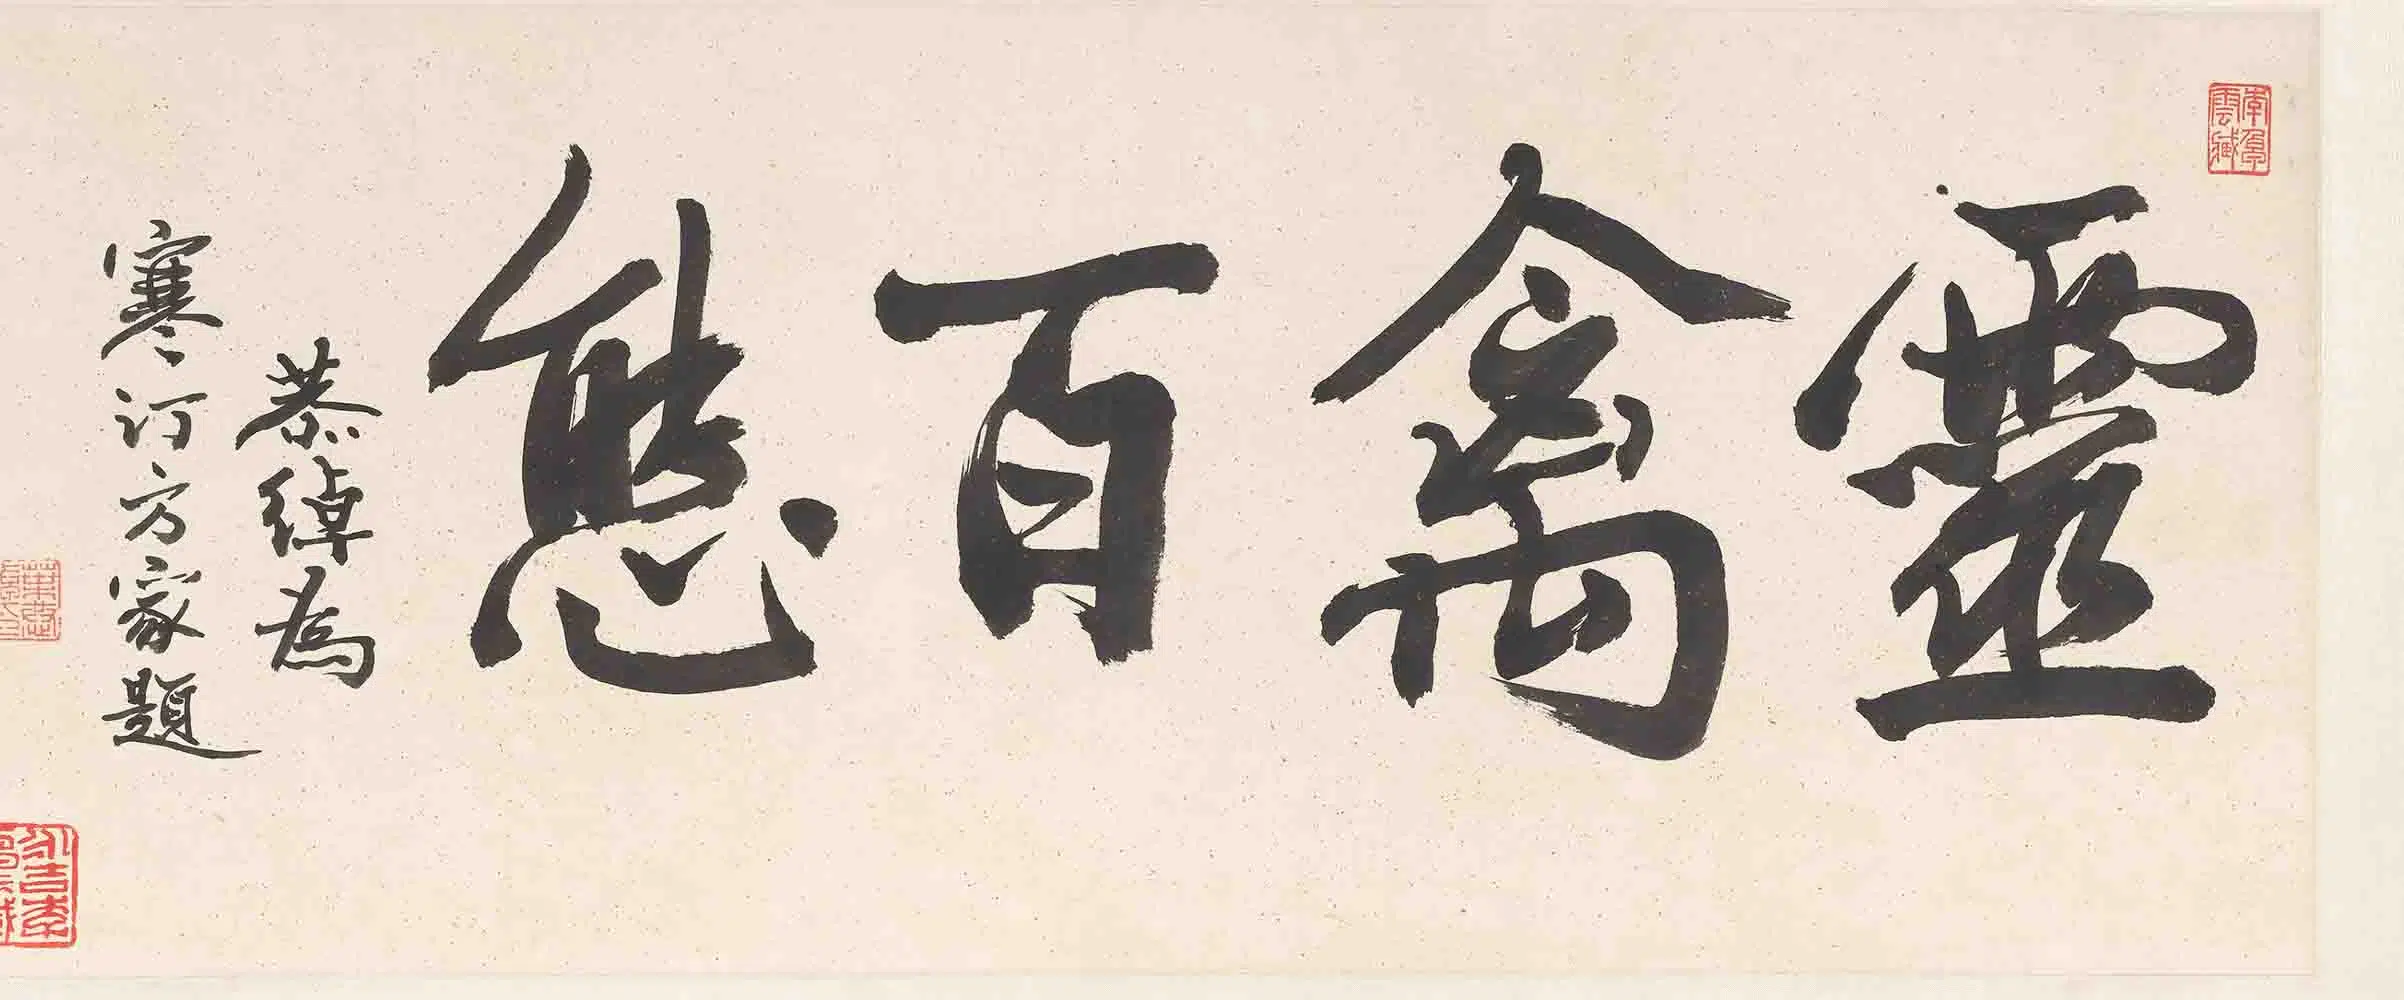 靈禽百態
恭綽為
寒汀方家題
葉恭